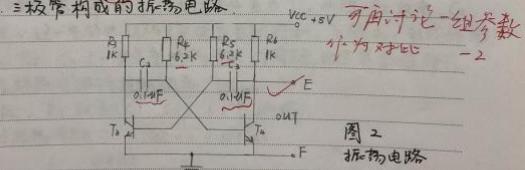 三极管构成的振荡电路.
VCC +5V
可再讨论一组参数
作为对比 -2
R4
6.2K
R5
6.2K
R6
1K
1K
C2
0.1uF
0.1uF
E
OUT
F
图2
振荡电路